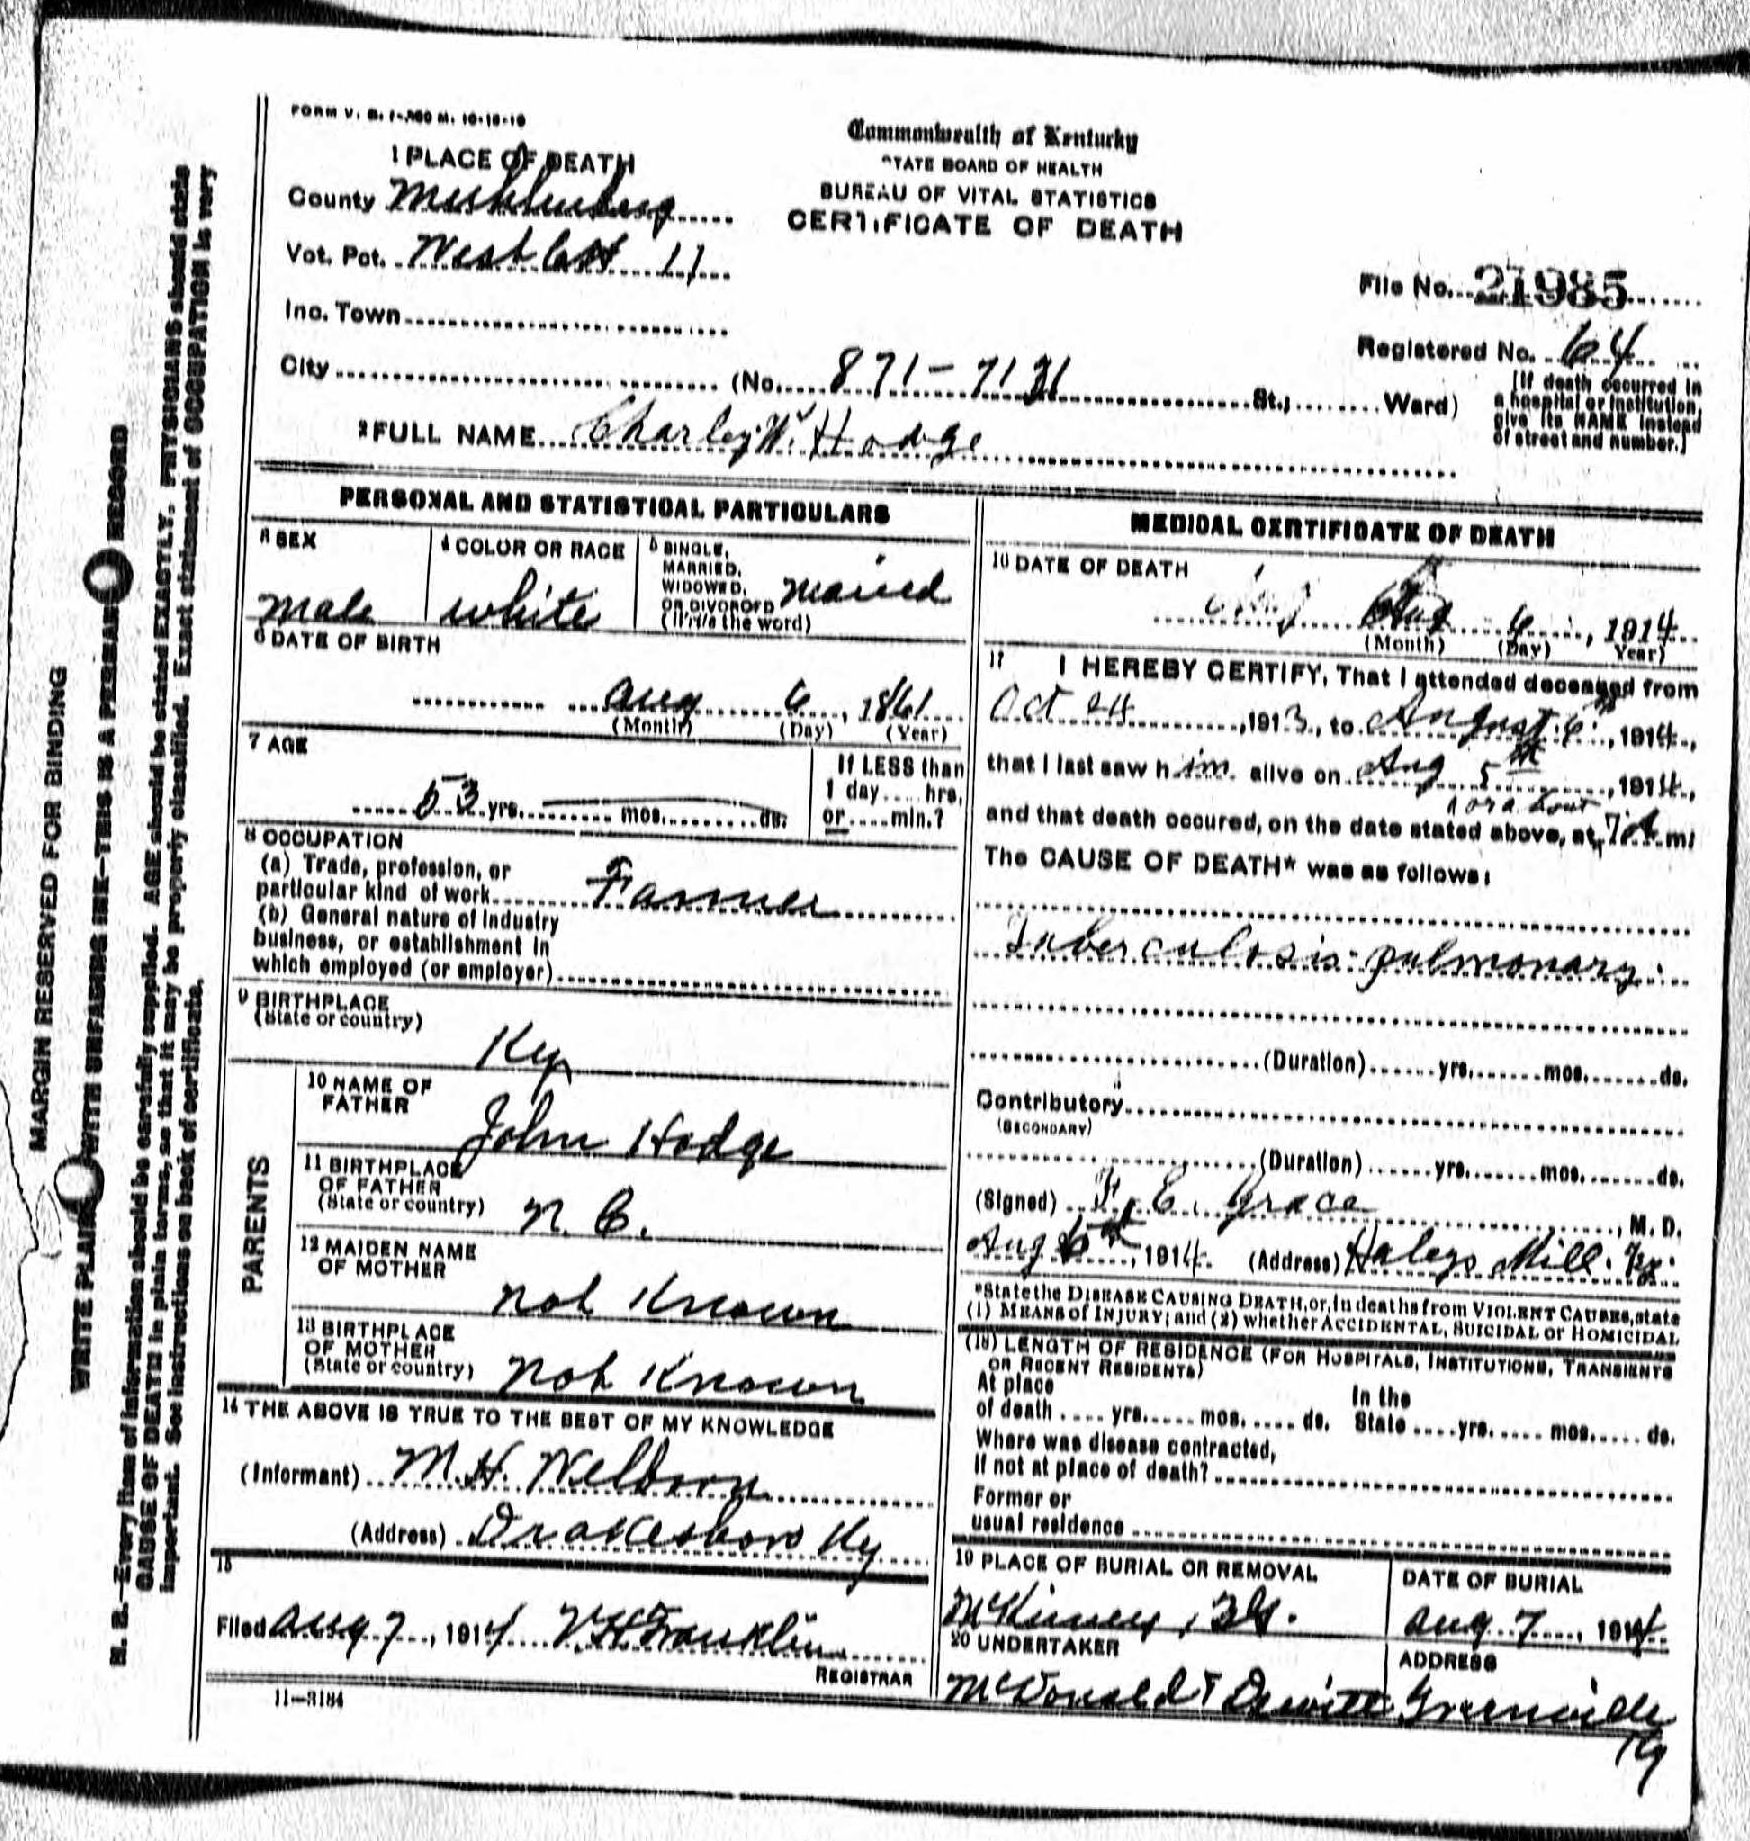 FORM V. S. 1-300 M. 10-18-10
Commonwealth of Kentucky
STATE BOARD OF HEALTH
BUREAU OF VITAL STATISTICS
CERTIFICATE OF DEATH
1 PLACE OF DEATH
County Muhlenberg
Vot. Pct. West 11
Inc. Town
City (No. 871-7131 St.; Ward)
File No. 21985
Registered No. 64
[If death occurred in
a hospital or institution,
give its NAME instead
of street and number.]
2 FULL NAME Charley W. Hodge
PERSONAL AND STATISTICAL PARTICULARS
3 SEX
male
4 COLOR OR RACE
white
5 SINGLE,
MARRIED,
WIDOWED,
OR DIVORCED
(Write the word)
maried
6 DATE OF BIRTH
Aug 6, 1861
(Month) (Day) (Year)
7 AGE
53 yrs. mos. ds.
If LESS than
1 day hrs.
or min.?
8 OCCUPATION
(a) Trade, profession, or
particular kind of work Farmer
(b) General nature of industry
business, or establishment in
which employed (or employer)
9 BIRTHPLACE
(State or country)
Ky
PARENTS
10 NAME OF
FATHER
John Hodge
11 BIRTHPLACE
OF FATHER
(State or country)
N. C.
12 MAIDEN NAME
OF MOTHER
not Known
13 BIRTHPLACE
OF MOTHER
(State or country)
not Known
14 THE ABOVE IS TRUE TO THE BEST OF MY KNOWLEDGE
(Informant) M. H. Welborn
(Address) Drakesboro Ky
15
Filed Aug 7, 1914 V H Franklin
REGISTRAR
11-3184
MEDICAL CERTIFICATE OF DEATH
16 DATE OF DEATH
Aug 6, 1914
(Month) (Day) Year)
17 I HEREBY CERTIFY, That I attended deceased from
Oct 24, 1913, to August 6th, 1914,
that I last saw him alive on Aug 5th, 1914,
and that death occured, on the date stated above, at 7 A m
The CAUSE OF DEATH* was as follows:
Tuberculosis pulmonary
(Duration) yrs. mos. ds.
Contributory
(SECONDARY)
(Duration) yrs. mos. ds.
(Signed) F. E. Grace, M. D.
Aug 6th, 1914. (Address) Haleys Mill. Ky.
*State the DISEASE CAUSING DEATH, or, in deaths from VIOLENT CAUSES, state
(1) MEANS of INJURY; and (2) whether ACCIDENTAL, SUICIDAL or HOMICIDAL
(18) LENGTH OF RESIDENCE (FOR HOSPITALS, INSTITUTIONS, TRANSIENTS
OR RECENT RESIDENTS)
At place
of death yrs. mos. ds.
In the
State yrs. mos. ds.
Where was disease contracted,
if not at place of death?
Former or
usual residence
19 PLACE OF BURIAL OR REMOVAL
McKinney
DATE OF BURIAL
Aug 7, 1914
20 UNDERTAKER
McDonald & Dewitt
ADDRESS
Greenville
Ky
MARGIN RESERVED FOR BINDING
WRITE PLAINLY WITH UNFADING INK—THIS IS A PERMANENT RECORD
N. B.—Every item of information should be carefully supplied. AGE should be stated EXACTLY. PHYSICIANS should state
CAUSE OF DEATH in plain terms, so that it may be properly classified. Exact statement of OCCUPATION is very
important. See instructions on back of certificate.